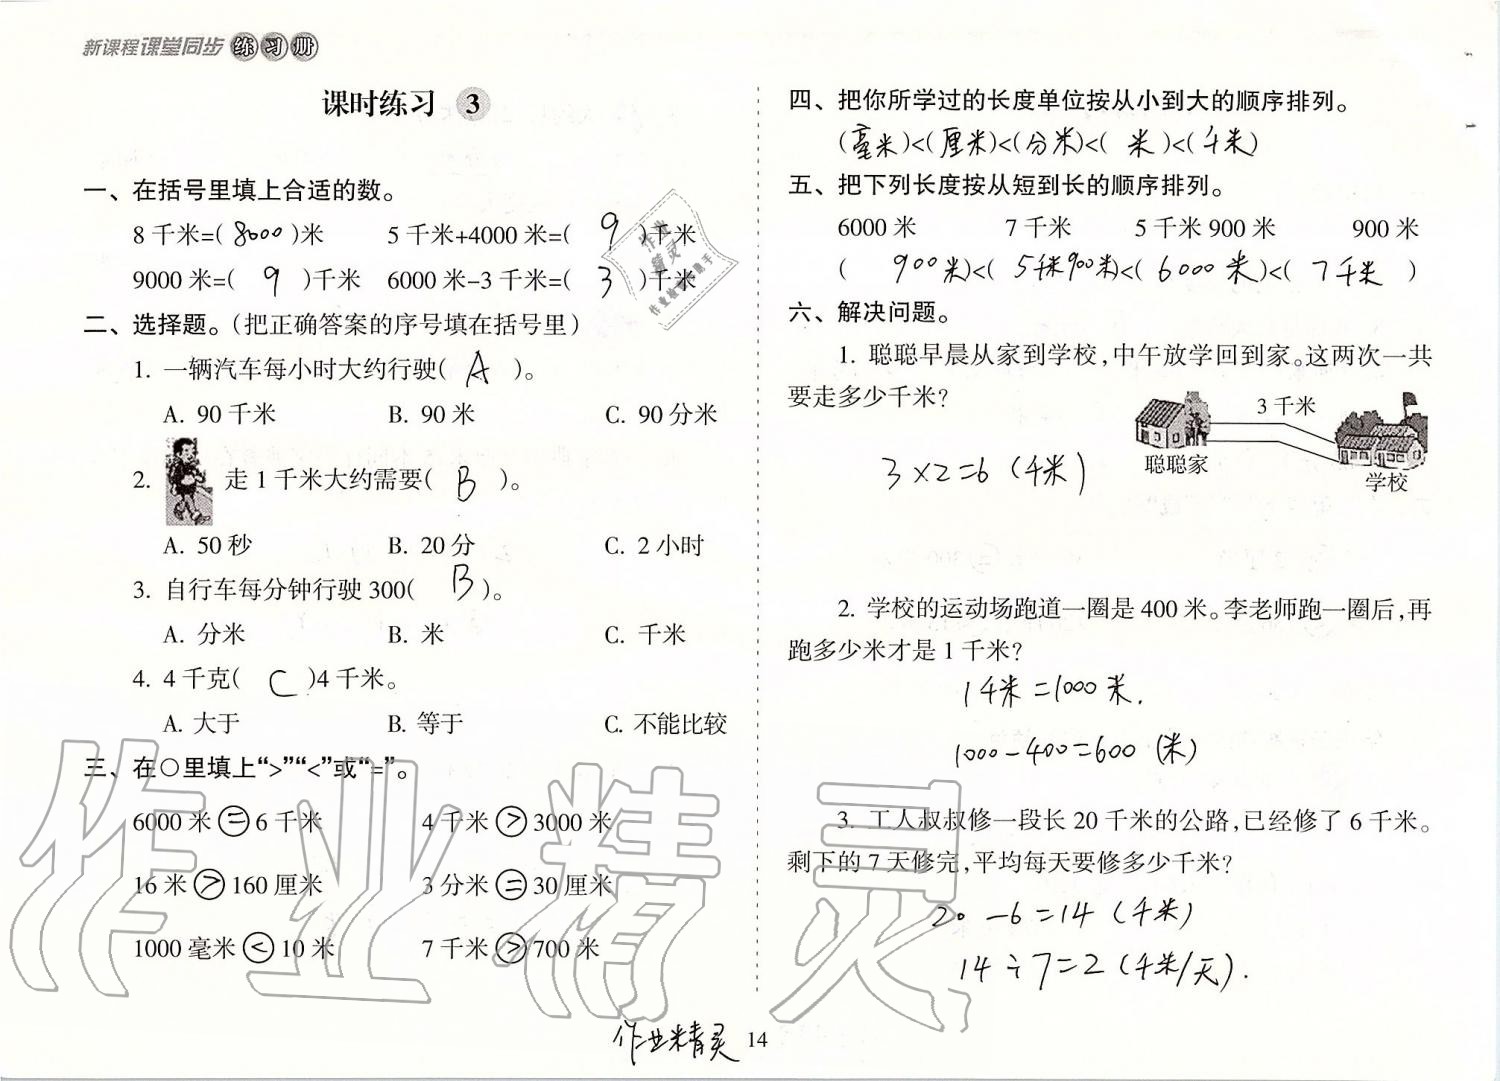 新课程课堂同步练习册
课时练习 3
一、在括号里填上合适的数。
8千米=( 8000 )米 5千米+4000米=( 9 )千米
9000米=( 9 )千米 6000米-3千米=( 3 )千米
二、选择题。(把正确答案的序号填在括号里)
1. 一辆汽车每小时大约行驶( A )。
A. 90千米 B. 90米 C. 90分米
2. 走1千米大约需要( B )。
A. 50秒 B. 20分 C. 2小时
3. 自行车每分钟行驶300( B )。
A. 分米 B. 米 C. 千米
4. 4千克( C )4千米。
A. 大于 B. 等于 C. 不能比较
三、在○里填上“>”“<”或“=”。
6000米=6千米 4千米>3000米
16米>160厘米 3分米=30厘米
1000毫米<10米 7千米>700米
四、把你所学过的长度单位按从小到大的顺序排列。
(毫米)<(厘米)<(分米)<( 米 )<(千米)
五、把下列长度按从短到长的顺序排列。
6000米 7千米 5千米900米 900米
( 900米)<( 5千米900米)<( 6000米)<( 7千米 )
六、解决问题。
1. 聪聪早晨从家到学校,中午放学回到家。这两次一共
要走多少千米?
3千米
聪聪家
学校
3×2=6(千米)
2. 学校的运动场跑道一圈是400米。李老师跑一圈后,再
跑多少米才是1千米?
1千米=1000米.
1000-400=600(米)
3. 工人叔叔修一段长20千米的公路,已经修了6千米。
剩下的7天修完,平均每天要修多少千米?
20-6=14(千米)
14÷7=2(千米/天).
作业精灵
作业精灵
14